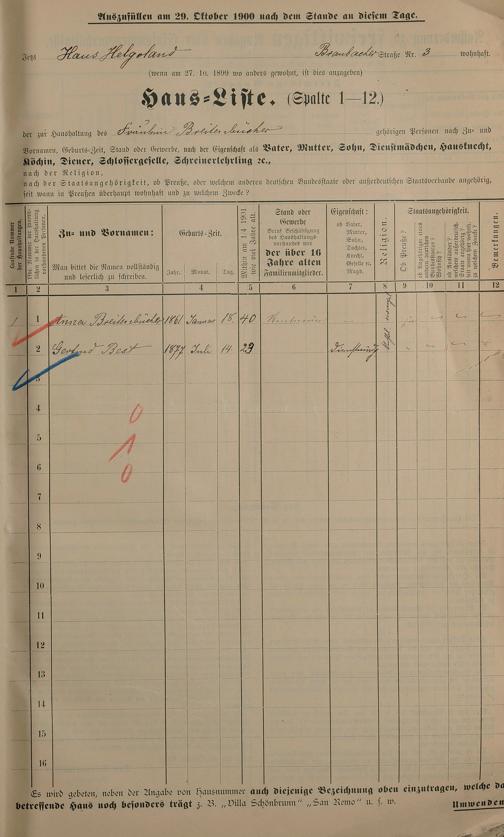 Auszufüllen am 29. Oktober 1900 nach dem Stande an diesem Tage.
Jetzt Haus Helgoland Braubacher Straße Nr. 3 wohnhaft.
(wenn am 27. 10. 1899 wo anders gewohnt, ist dies anzugeben)
Haus-Liste. (Spalte 1—12.)
der zur Haushaltung des Fräulein Breitenbücher gehörigen Personen nach Zu- und
Vornamen, Geburts-Zeit, Stand oder Gewerbe, nach der Eigenschaft als Vater, Mutter, Sohn, Dienstmädchen, Hausknecht,
Köchin, Diener, Schlossergeselle, Schreinerlehrling ꝛc.,
nach der Religion,
nach der Staatsangehörigkeit, ob Preuße, oder welchem anderen deutschen Bundesstaate oder außerdeutschen Staatsverbande angehörig,
seit wann in Preußen überhaupt wohnhaft und zu welchem Zwecke?
Laufende Nummer der Haushaltungen.
Zu- und Vornamen:
Man bittet die Namen vollständig und leserlich zu schreiben.
Geburts-Zeit.
Jahr. Monat. Tag.
Mithin am 1.4.1901 wie viel Jahre alt.
Stand oder Gewerbe
der über 16 Jahre alten Familienmitglieder.
Eigenschaft:
ob Vater, Mutter, Sohn, Tochter, Knecht, Geselle o. Magd.
Religion.
Staatsangehörigkeit.
Ob Preuße?
Bemerkungen.
1 2 3 4 5 6 7 8 9 10 11 12
1 1 Anna Breitenbücher 1861 Januar 18. 40
2 Gertrud Best 1877 Juli 14. 23
3
4 0
5 1
6 0
7
8
9
10
11
12
13
14
15
16
Es wird gebeten, neben der Angabe von Hausnummer auch diejenige Bezeichnung oben einzutragen, welche da
betreffende Haus noch besonders trägt z. B. „Villa Schönbrunn" „San Remo" u. s. w.
Umwenden